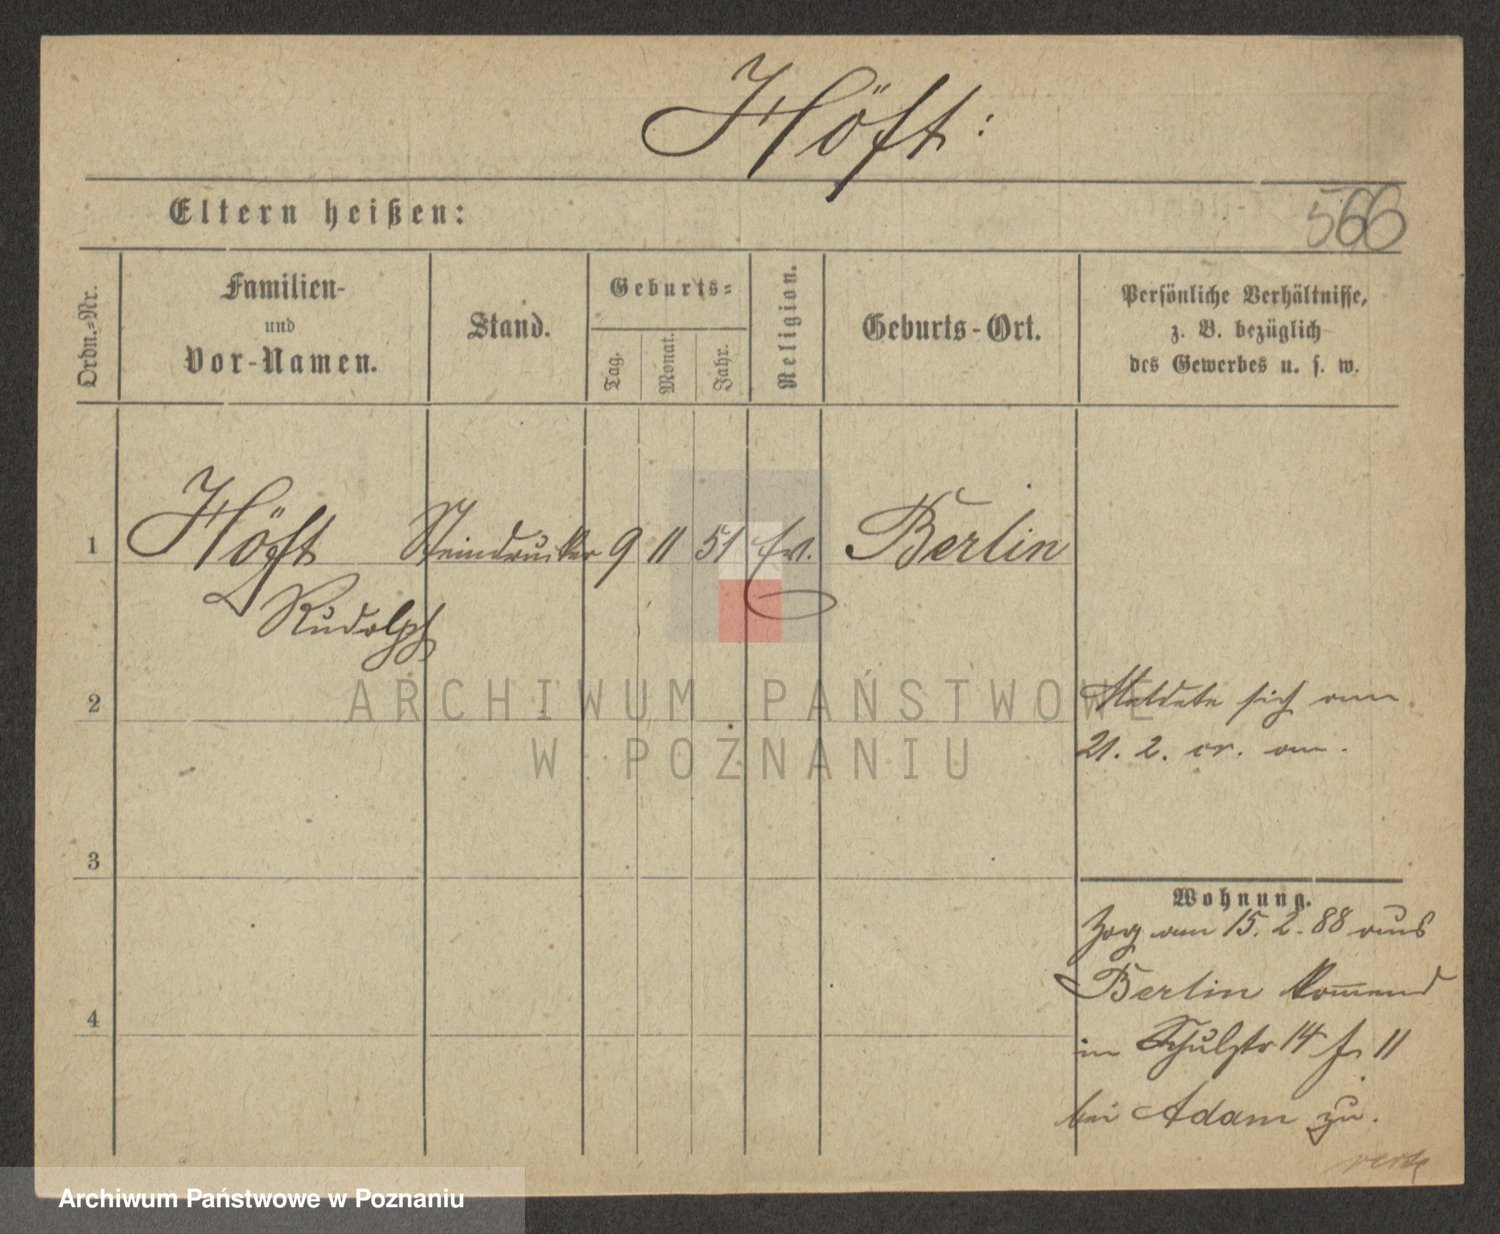 Höft:
Eltern heißen:
566
Ordn.-Nr.
Familien-
und
Vor-Namen.
Stand.
Geburts-
Tag.
Monat.
Jahr.
Religion.
Geburts-Ort.
Persönliche Verhältnisse,
z. B. bezüglich
des Gewerbes u. s. w.
1 Höft Steindrucker 9 11 51 Ev. Berlin
Rudolph
2
Meldete sich am
21. 2. cr. an.
3
Wohnung.
Zog am 15. 2. 88 aus
Berlin kommend
4
in Schulstr 14 11
bei Adam zu.
ARCHIWUM PAŃSTWOWE
W POZNANIU
Archiwum Państwowe w Poznaniu